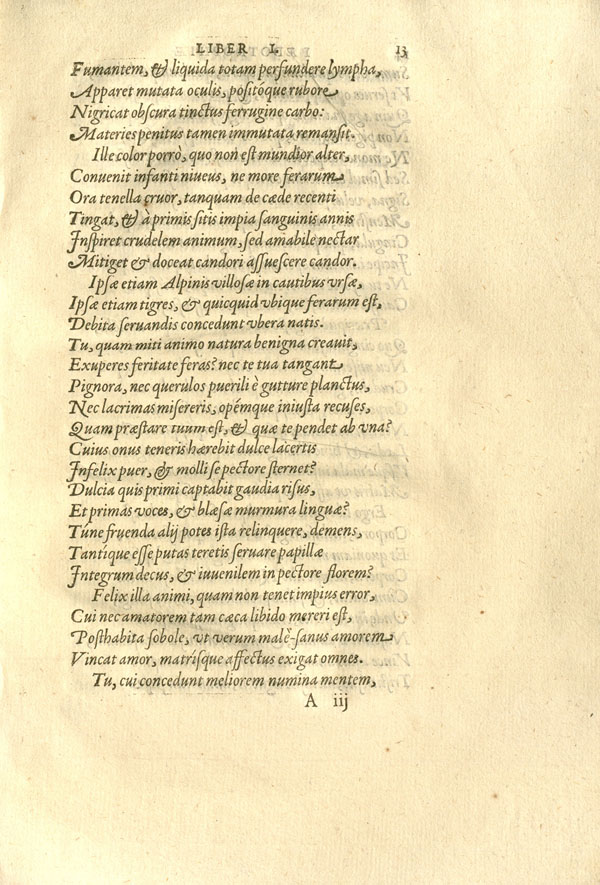 LIBER I. 13
Fumantem, & liquida totam perfundere lympha,
Apparet mutata oculis, positóque rubore
Nigricat obscura tinctus ferrugine carbo:
Materies penitus tamen immutata remansit.
Ille color porrò, quo non est mundior alter,
Convenit infanti niueus, ne more ferarum
Ora tenella cruor, tanquam de cæde recenti
Tingat, & à primis sitis impia sanguinis annis
Inspiret crudelem animum, sed amabile nectar
Mitiget & doceat candori assuescere candor.
Ipsæ etiam Alpinis villosæ in cautibus vrsæ,
Ipsæ etiam tigres, & quicquid vbique ferarum est,
Debita seruandis concedunt vbera natis.
Tu, quam miti animo natura benigna creauit,
Exuperes feritate feras? nec te tua tangant
Pignora, nec querulos puerili è gutture planctus,
Nec lacrimas misereris, opémque iniusta recuses,
Quam præstare tuum est, & quæ te pendet ab vna?
Cuius onus teneris hærebit dulce lacertis
Infelix puer, & molli se pectore sternet?
Dulcia quis primi captabit gaudia risus,
Et primas voces, & blæsæ murmura linguæ?
Túne fruenda alij potes ista relinquere, demens,
Tantíque esse putas teretis seruare papillæ
Integrum decus, & iuuenilem in pectore florem?
Felix illa animi, quam non tenet impius error,
Cui nec amatorem tam cæca libido mereri est,
Posthabita sobole, vt verum malè-sanus amorem
Vincat amor, matrísque affectus exigat omnes.
Tu, cui concedunt meliorem numina mentem,
A iij